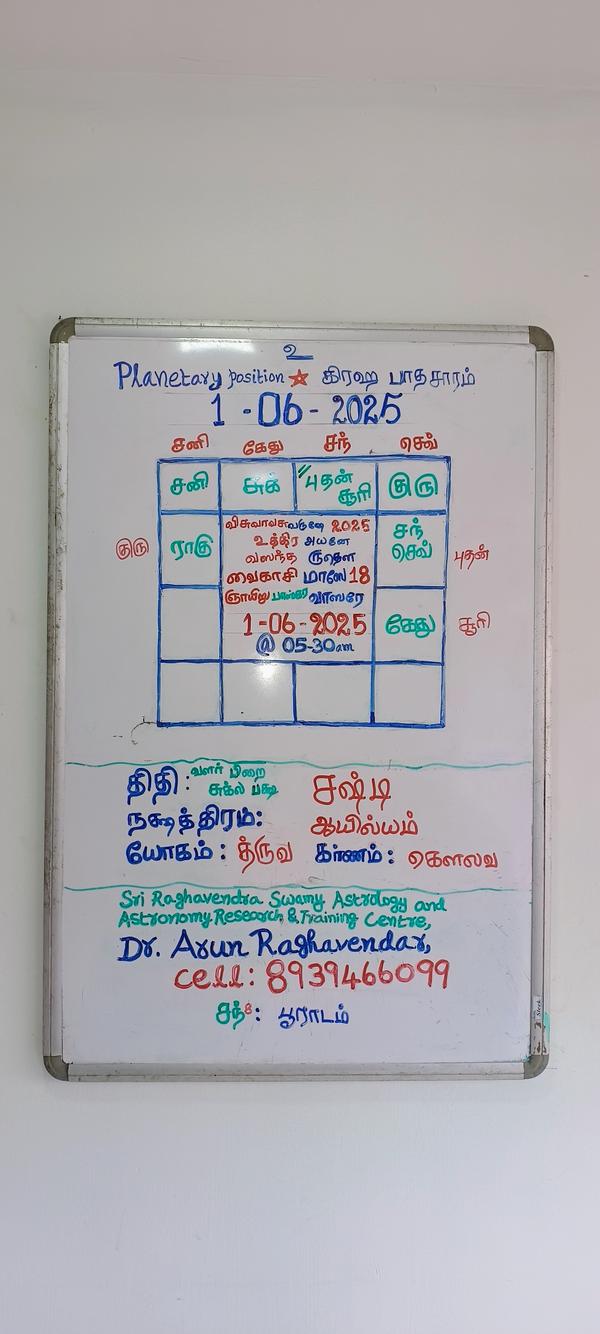 உ
Planetary position ☆ கிரஹ பாதசாரம்
1 - 06 - 2025
சனி கேது சந் செவ்
சனி சுக் புதன் சூரி குரு
குரு ராகு சந் செவ் புதன்
விசுவாவசு வருஷே 2025
உத்திர அயனே
வஸந்த ருதௌ
வைகாசி மாஸே 18
ஞாயிறு பாஸ்கர வாஸரே
1-06-2025
@ 05-30am
கேது சூரி
திதி : வளர் பிறை சுக்ல பக்ஷ சஷ்டி
நக்ஷத்திரம்: ஆயில்யம்
யோகம் : த்ருவ கர்ணம் : கௌலவ
Sri Raghavendra Swamy Astrology and
Astronomy Research & Training Centre,
Dr. Arun Raghavendar,
cell: 8939466099
சந் 8 : பூராடம்